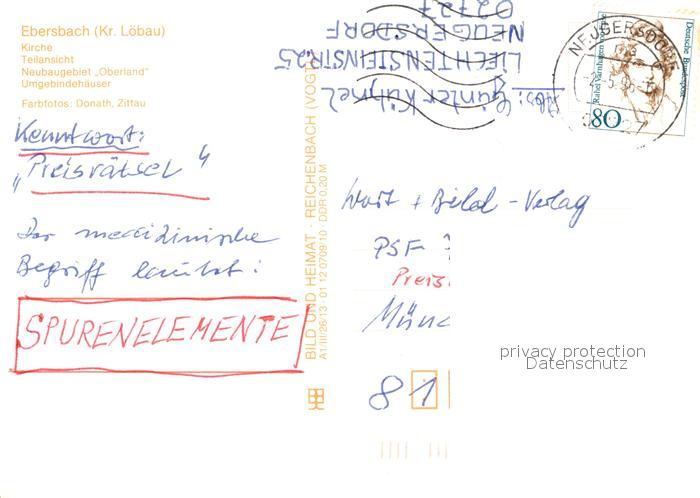 Ebersbach (Kr. Löbau)
Kirche
Teilansicht
Neubaugebiet „Oberland"
Umgebindehäuser
Farbfotos: Donath, Zittau
Kenntwort:
„Preisrätsel"
Der medizinische
Begriff lautet:
SPURENELEMENTE
BILD UND HEIMAT · REICHENBACH (VOGTL
A1/III/26/13 · 01 12 0709/10 · DDR 0,20 M
Abs: Günter Kühnel
LIECHTENSTEINSTR 25
NEUGERSDORF
02727
NEUGERSDORF
Rahel Varnhagen
Deutsche Bundespost
80
Wort + Bild - Verlag
PSF
Preis
Münc
81
privacy protection
Datenschutz